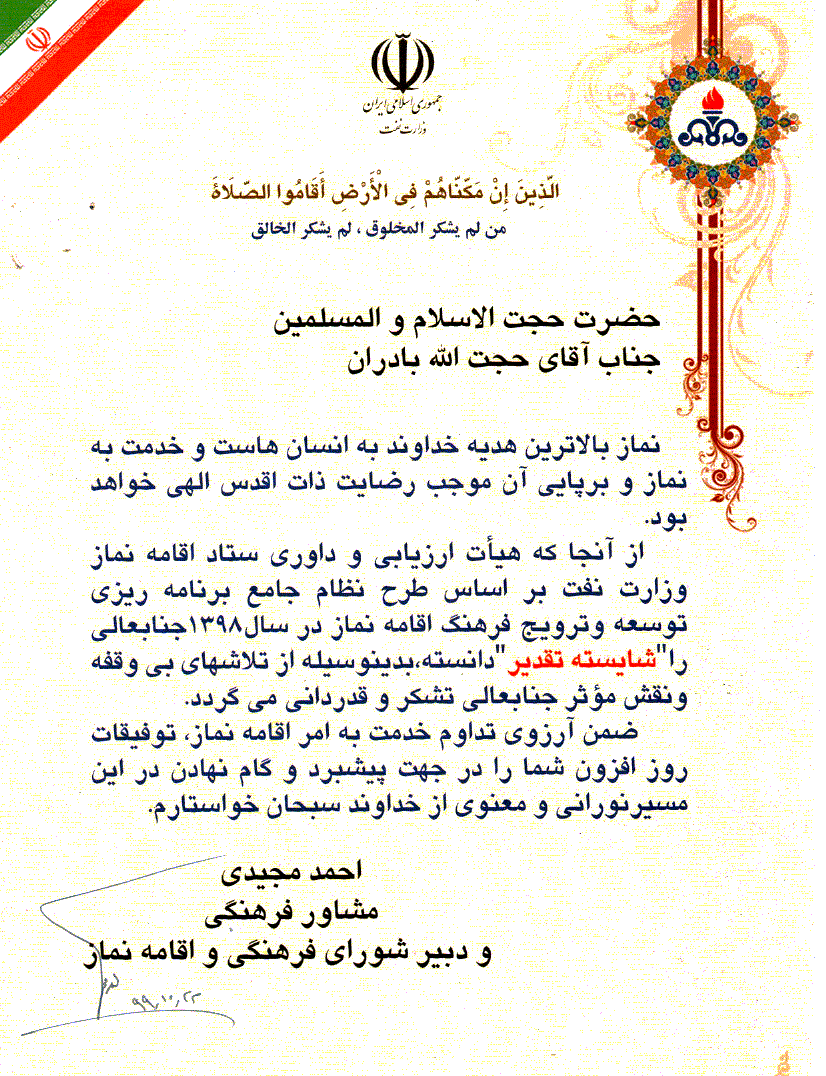 جمهوری اسلامی ایران
وزارت نفت
الَّذِينَ إِنْ مَكَّنَّاهُمْ فِی الْأَرْضِ أَقَامُوا الصَّلَاةَ
من لم یشکر المخلوق ، لم یشکر الخالق
حضرت حجت الاسلام و المسلمین
جناب آقای حجت الله بادران
نماز بالاترین هدیه خداوند به انسان هاست و خدمت به
نماز و برپایی آن موجب رضایت ذات اقدس الهی خواهد
بود.
از آنجا که هیأت ارزیابی و داوری ستاد اقامه نماز
وزارت نفت بر اساس طرح نظام جامع برنامه ریزی
توسعه وترویج فرهنگ اقامه نماز در سال۱۳۹۸جنابعالی
را"شایسته تقدیر"دانسته،بدینوسیله از تلاشهای بی وقفه
ونقش مؤثر جنابعالی تشکر و قدردانی می گردد.
ضمن آرزوی تداوم خدمت به امر اقامه نماز، توفیقات
روز افزون شما را در جهت پیشبرد و گام نهادن در این
مسیرنورانی و معنوی از خداوند سبحان خواستارم.
احمد مجیدی
مشاور فرهنگی
و دبیر شورای فرهنگی و اقامه نماز
۹۹,۱۰,۲۲